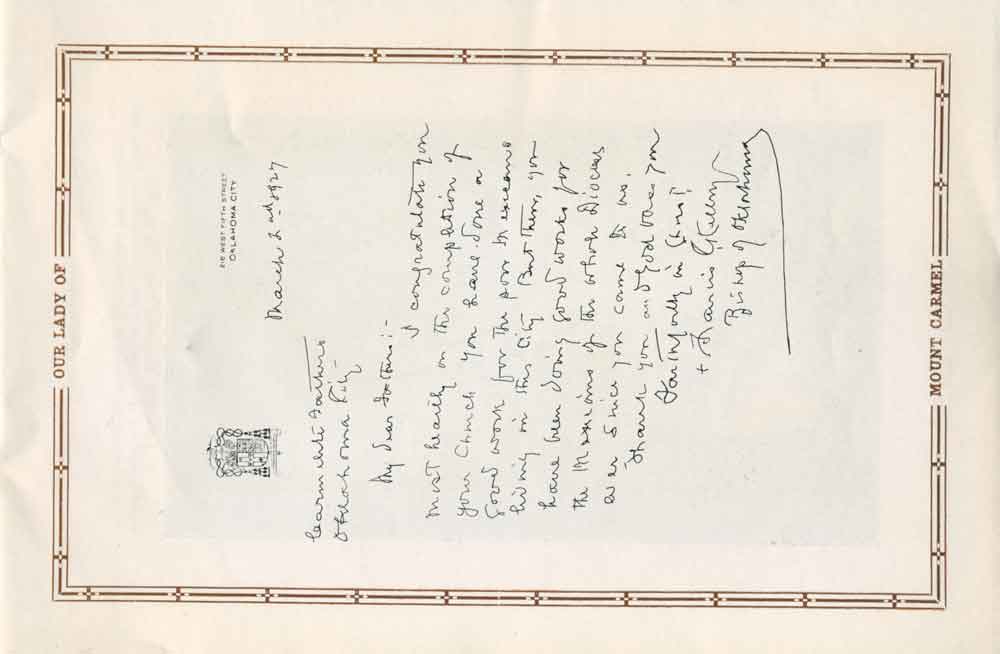 OUR LADY OF
216 WEST FIFTH STREET
OKLAHOMA CITY
March 2nd 1927
Carmelite Fathers
Oklahoma City—
My Dear Fathers:—
I congratulate you
most heartily on the completion of
your Church. You have done a
good work for the poor Mexicans
living in this City. But then, you
have been doing good works for
the Mexicans of the whole Diocese
ever since you came to us.
Thank you and God bless you
Faithfully in Christ
+ Francis C Kelley
Bishop of Oklahoma
MOUNT CARMEL